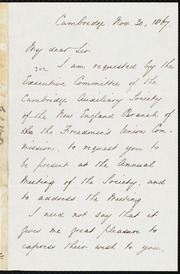 Cambridge Nov. 20, 1867.
My dear Sir
I am requested by the
Executive Committee of the
Cambridge Auxiliary Society
of the New England Branch of
the Freedmen's Union Com-
mission, to request you to
be present at the Annual
Meeting of the Society, and
to address the Meeting.
I need not say that it
gives me great pleasure to
express their wish to you,